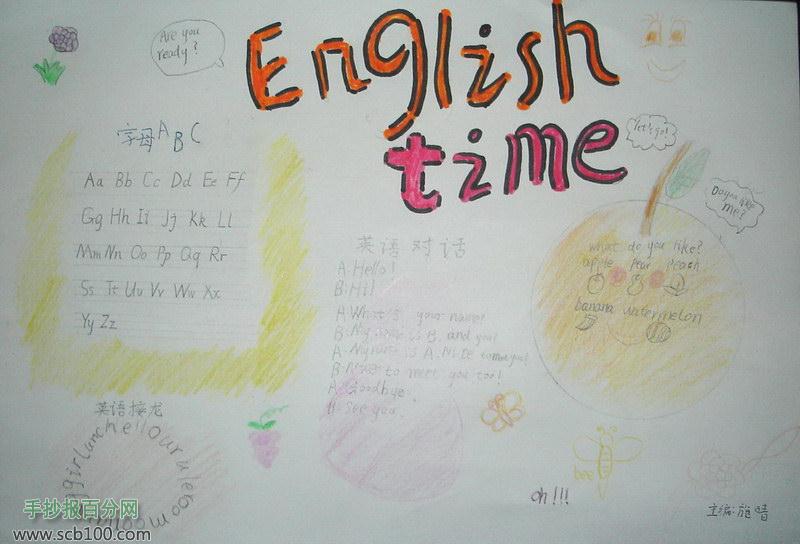 Are you
ready?
English
time
Let's go!
Do you like
me?
字母 A B C
Aa Bb Cc Dd Ee Ff
Gg Hh Ii Jj Kk Ll
Mm Nn Oo Pp Qq Rr
Ss Tt Uu Vv Ww Xx
Yy Zz
英语对话
A: Hello!
B: Hi!
A: What's your name?
B: My name is B. and you?
A: My name is A.
B: to meet you too!
A: Goodbye.
B: See you.
what do you like?
apple pear peach
banana watermelon
英语接龙
girl lunchell our ule room
bee
oh!!!
主编:施晴
手抄报百分网
www.scb100.com